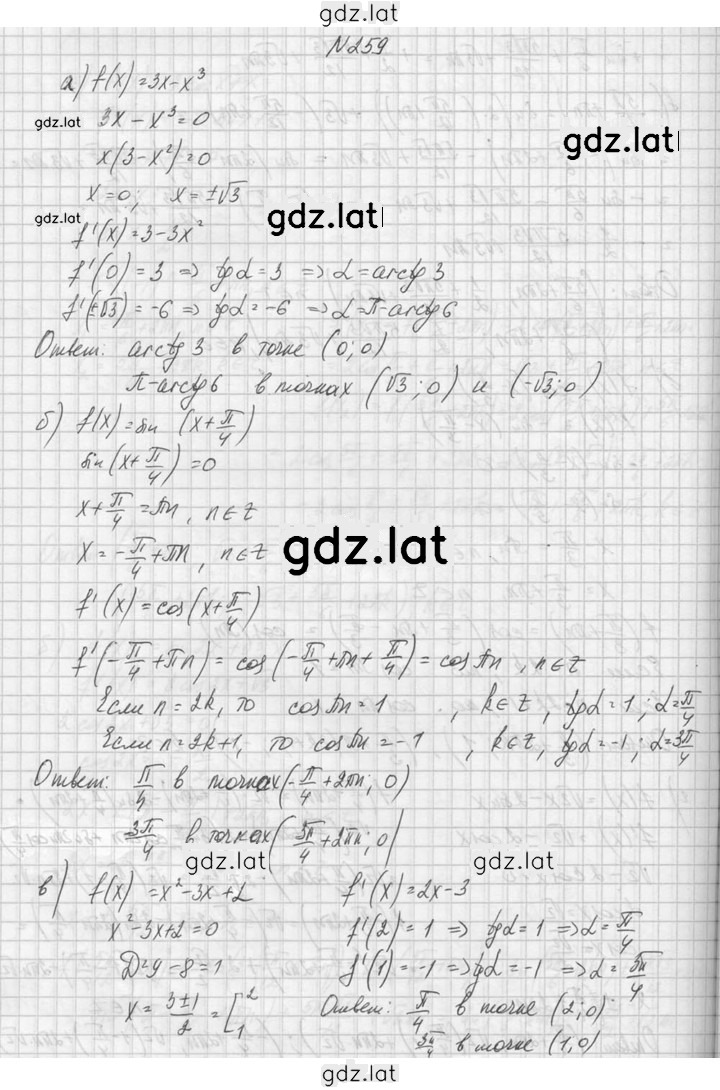 gdz.lat
№259
а) f(x)=3x-x³
gdz.lat
3x-x³=0
gdz.lat
x(3-x²)=0
x=0; x=±√3
gdz.lat
gdz.lat
f'(x)=3-3x²
f'(0)=3 => tgα=3 => α=arctg 3
f'(±√3)=-6 => tgα=-6 => α=π-arctg6
Ответ: arctg 3 в точке (0;0)
π-arctg6 в точках (√3;0) и (-√3;0)
б) f(x)=sin (x+π/4)
sin(x+π/4)=0
x+π/4=πn, n∈Z
gdz.lat
x=-π/4+πn, n∈Z
f'(x)=cos(x+π/4)
f'(-π/4+πn)=cos(-π/4+πn+π/4)=cosπn, n∈Z
Если n=2k, то cosπn=1, k∈Z, tgα=1; α=π/4
Если n=2k+1, то cosπn=-1, k∈Z, tgα=-1; α=3π/4
Ответ: π/4 в точках(-π/4+2πn; 0)
3π/4 в точках(3π/4+2πn; 0)
gdz.lat
gdz.lat
в) f(x)=x²-3x+2 f'(x)=2x-3
x²-3x+2=0 f'(2)=1 => tgα=1 => α=π/4
D=9-8=1 f'(1)=-1 => tgα=-1 => α=3π/4
x=3±1/2=[2 1 Ответ: π/4 в точке (2;0)
3π/4 в точке (1;0)
gdz.lat
gdz.lat
gdz.lat